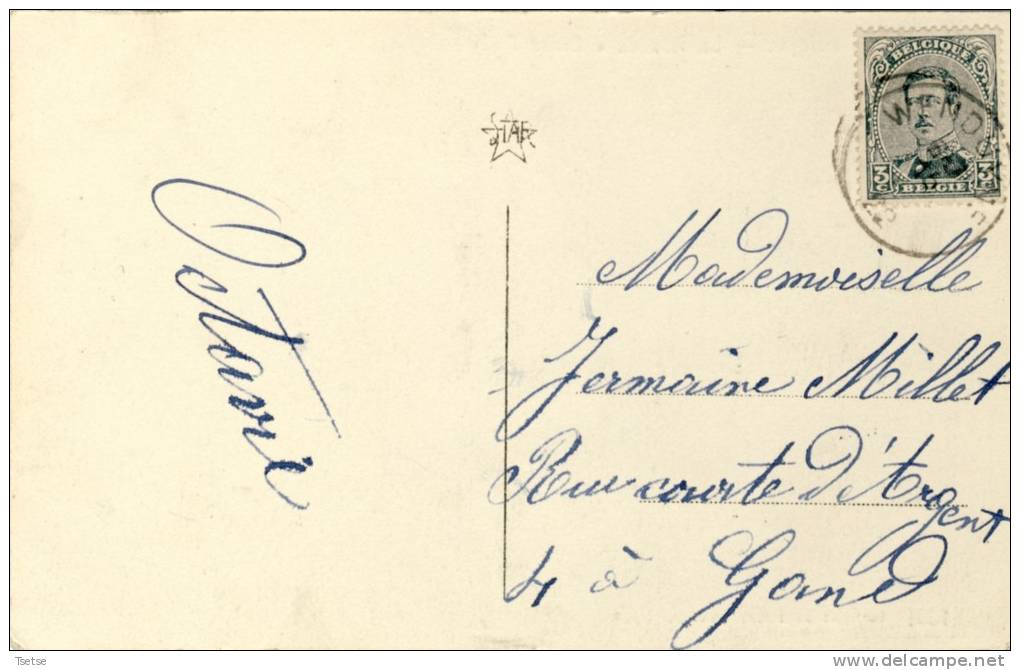 BELGIQUE
3c 3c
BELGIË
STAR
Octavie
Mademoiselle
Germaine Millet
Rue courte d'Argent
4 à Gand
Tsetse
http://www.delcampe.net